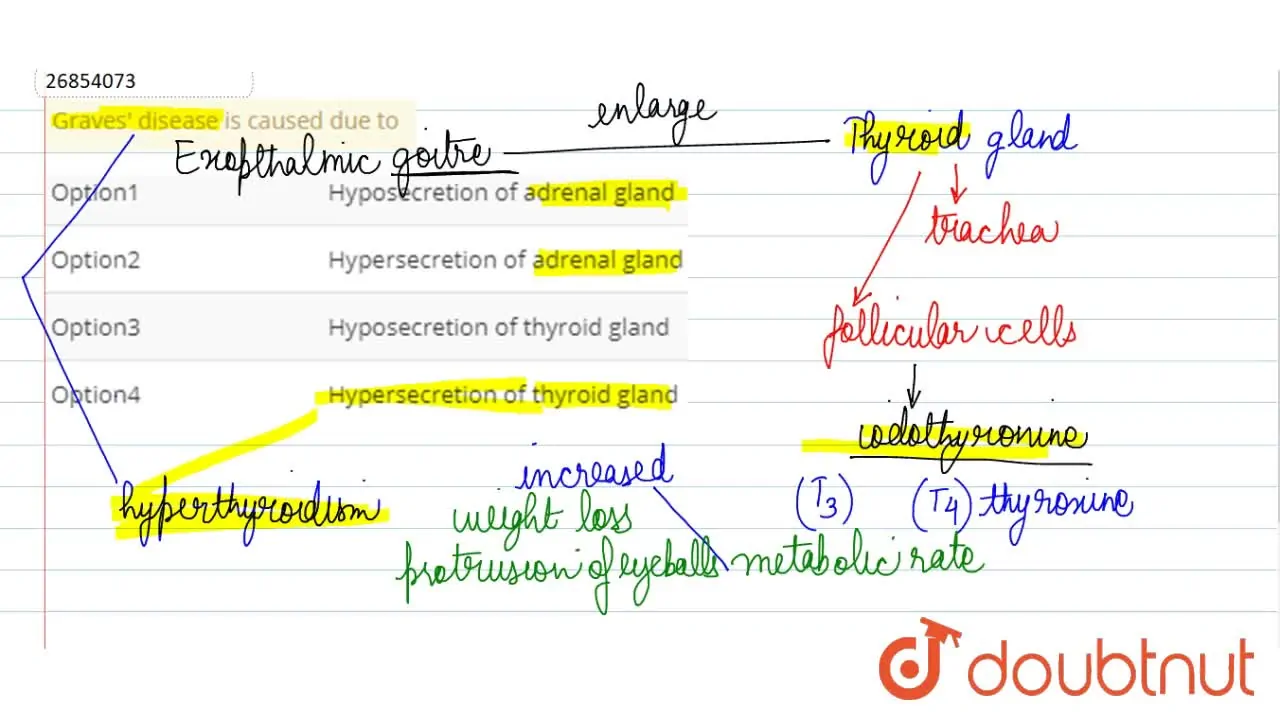 26854073
Graves' disease is caused due to
enlarge
Exopthalmic goitre
Thyroid gland
Option1 Hyposecretion of adrenal gland
trachea
Option2 Hypersecretion of adrenal gland
Option3 Hyposecretion of thyroid gland
follicular cells
Option4 Hypersecretion of thyroid gland
iodothyronine
increased
hyperthyroidism
(T3) (T4) thyroxine
weight loss
protrusion of eyeballs metabolic rate
doubtnut